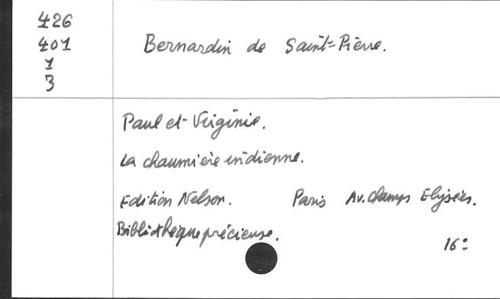 426
401
1
3
Bernardin de Saint-Pierre.
Paul et Virginie.
La chaumière indienne.
Edition Nelson. Paris Av. Champs Elysées.
Bibliothèque précieuse.
16º